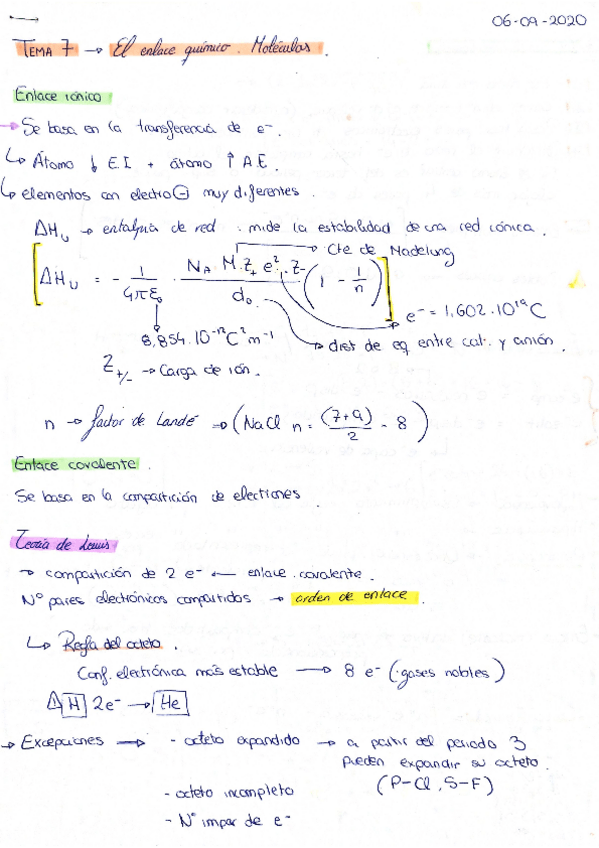 06-09-2020
TEMA 7 → El enlace químico. Moléculas.
Enlace iónico
→ Se basa en la transferencia de e⁻.
↳ Átomo ↓ EI + átomo ↑ AE.
↳ elementos con electro⊖ muy diferentes.
ΔHᵤ → entalpía de red : mide la estabilidad de una red iónica.
Cte de Madelung
[ΔHᵤ = - 1/(4πε₀) · (N_A · M · Z₊ e² · Z₋)/d₀ (1 - 1/n)]
e⁻ = 1,602·10¹⁹ C
8,854·10⁻¹² C² m⁻¹
dist de eq entre cat. y anión.
Z₊/₋ → Carga de ión.
n → factor de Landé → (NaCl n = (7+9)/2 = 8)
Enlace covalente.
Se basa en la compartición de electrones
Teoría de Lewis
→ compartición de 2 e⁻ ← enlace covalente.
Nº pares electrónicos compartidos → orden de enlace.
↳ Regla del octeto.
Conf. electrónica más estable → 8 e⁻ (gases nobles)
⚠ H 2e⁻ → He
→ Excepciones → - octeto expandido → a partir del periodo 3
pueden expandir su octeto.
(P-Cl, S-F)
- octeto incompleto
- Nº impar de e⁻